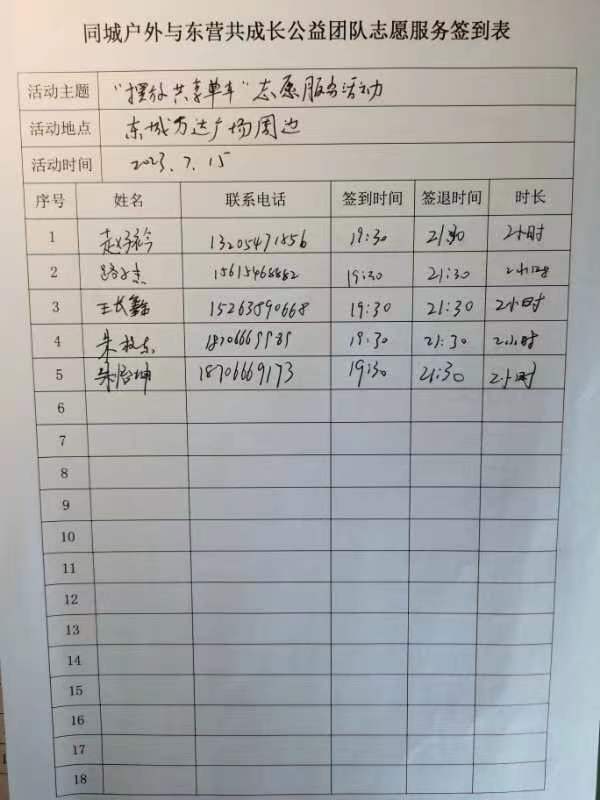 同城户外与东营共成长公益团队志愿服务签到表
活动主题 “摆放共享单车”志愿服务活动
活动地点 东城万达广场周边
活动时间 2023.7.15
序号 姓名 联系电话 签到时间 签退时间 时长
1 赵 13205471556 19:30 21:30 2小时
2 15615468882 19:30 21:30 2小时
3 王长鑫 15263890668 19:30 21:30 2小时
4 朱 19:30 21:30 2小时
5 朱 坤 18706669173 19:30 21:30 2小时
6
7
8
9
10
11
12
13
14
15
16
17
18